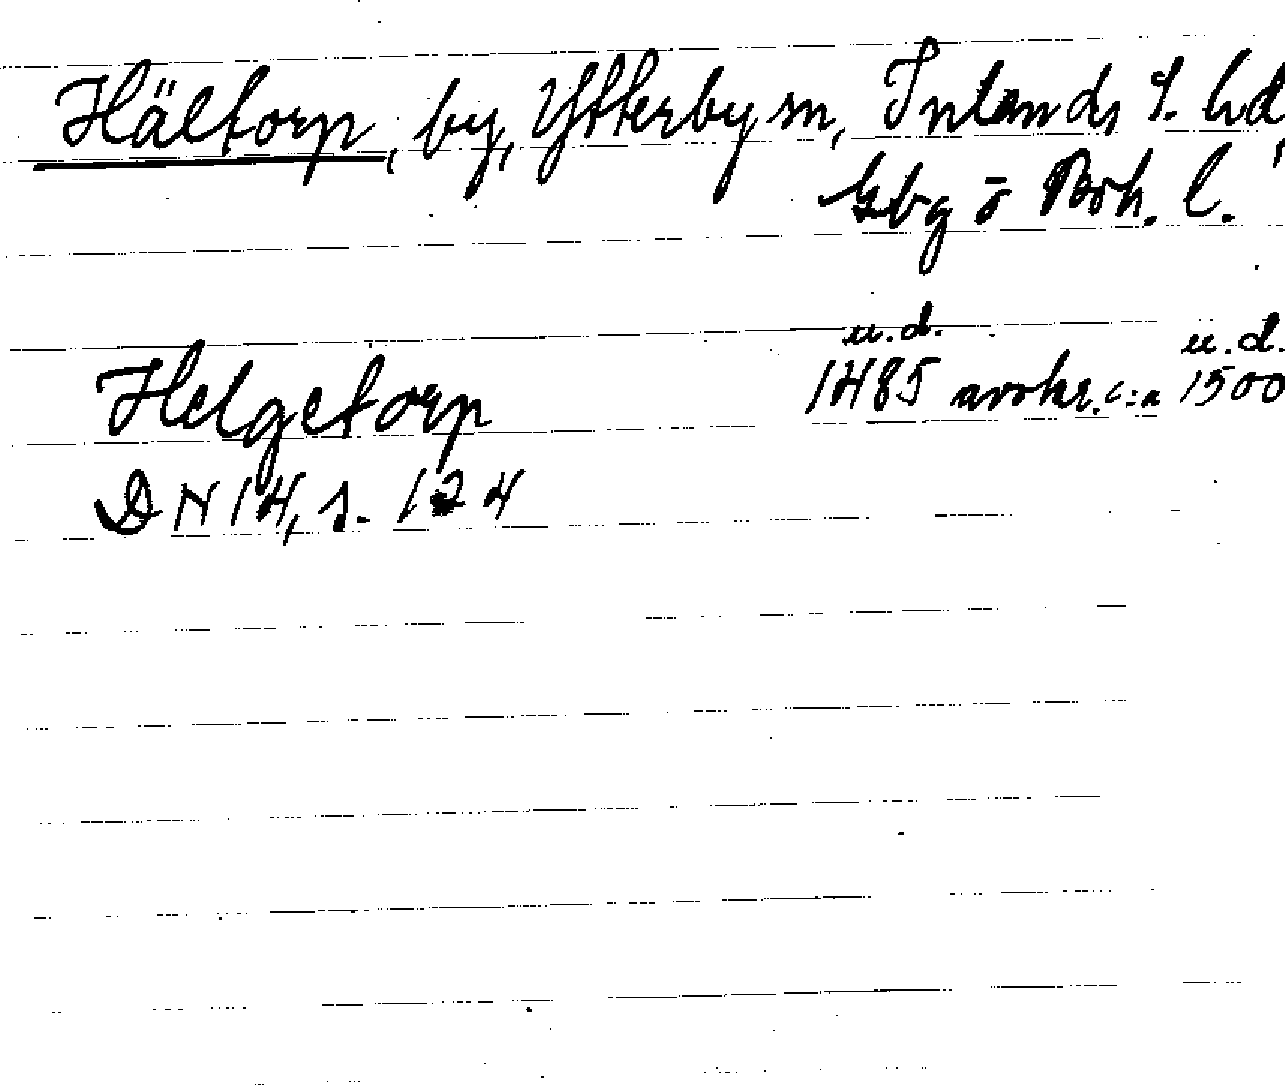 Hältorp, by, Ytterby sn, Inlands S. hd,
Gbg o Boh. l.
u.d. u.d.
Helgetorp 1485 avskr. c:a 1500
DN 14, s. 124